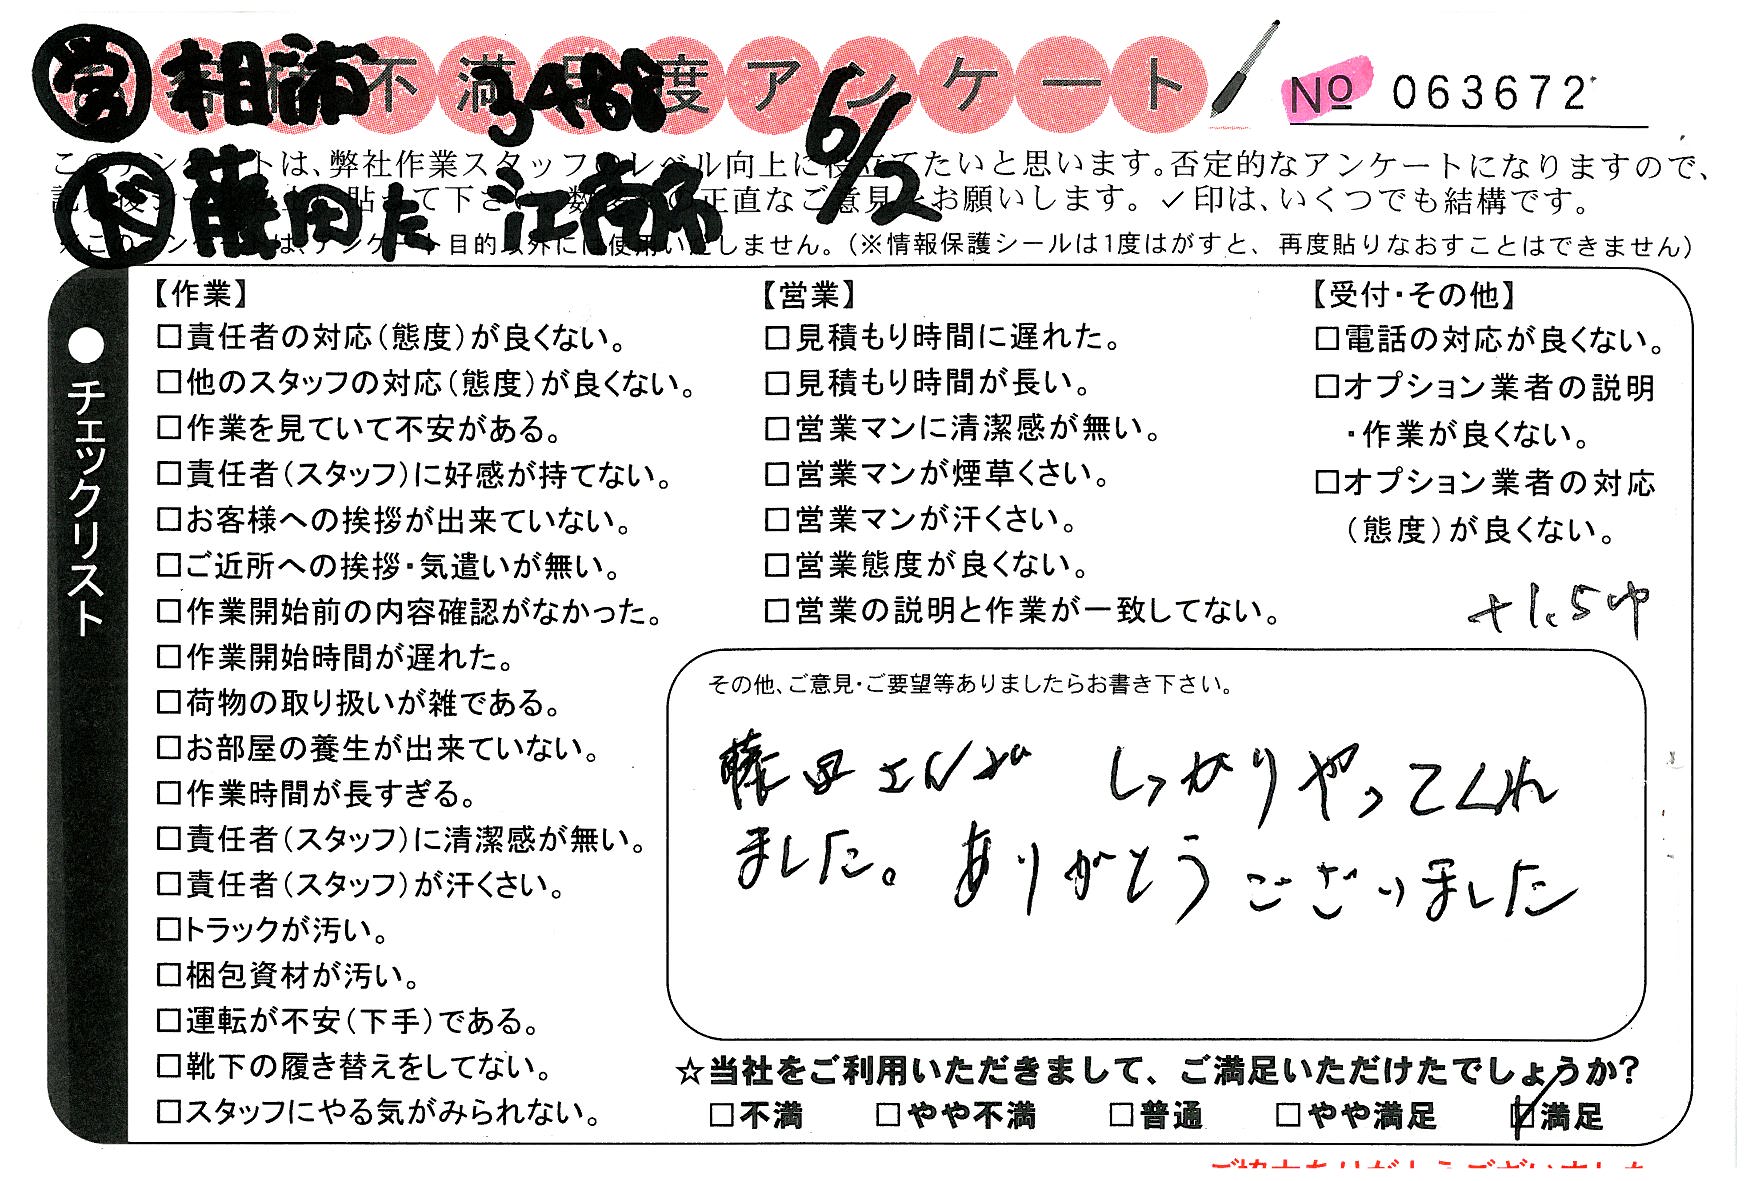 営 相浦 3488 6/2
不満足度アンケート No 063672
このアンケートは、弊社作業スタッフのレベル向上に役立てたいと思います。否定的なアンケートになりますので、
貼って下さい 正直なご意見をお願いします。✓印は、いくつでも結構です。
ト 藤田た 江
※このアンケートは、アンケート目的以外には使用いたしません。(※情報保護シールは1度はがすと、再度貼りなおすことはできません)
●チェックリスト
【作業】
□責任者の対応(態度)が良くない。
□他のスタッフの対応(態度)が良くない。
□作業を見ていて不安がある。
□責任者(スタッフ)に好感が持てない。
□お客様への挨拶が出来ていない。
□ご近所への挨拶・気遣いが無い。
□作業開始前の内容確認がなかった。
□作業開始時間が遅れた。
□荷物の取り扱いが雑である。
□お部屋の養生が出来ていない。
□作業時間が長すぎる。
□責任者(スタッフ)に清潔感が無い。
□責任者(スタッフ)が汗くさい。
□トラックが汚い。
□梱包資材が汚い。
□運転が不安(下手)である。
□靴下の履き替えをしてない。
□スタッフにやる気がみられない。
【営業】
□見積もり時間に遅れた。
□見積もり時間が長い。
□営業マンに清潔感が無い。
□営業マンが煙草くさい。
□営業マンが汗くさい。
□営業態度が良くない。
□営業の説明と作業が一致してない。
【受付・その他】
□電話の対応が良くない。
□オプション業者の説明
・作業が良くない。
□オプション業者の対応
(態度)が良くない。
+1.5ゆ
その他、ご意見・ご要望等ありましたらお書き下さい。
藤田さんが しっかりやってくれ
ました。ありがとうございました
☆当社をご利用いただきまして、ご満足いただけたでしょうか?
□不満 □やや不満 □普通 □やや満足 ☑満足
ご協力ありがとうございました